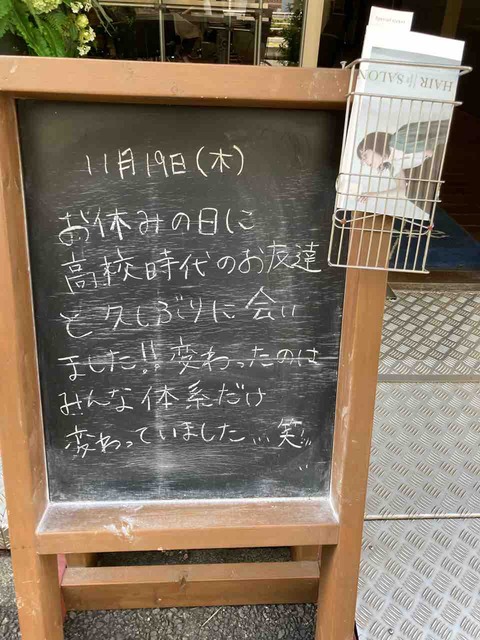 11月19日(木)
お休みの日に
高校時代のお友達
と久しぶりに会い
ました!! 変わったのは
みんな体系だけ
変わっていました... 笑!!
HAIR SALON